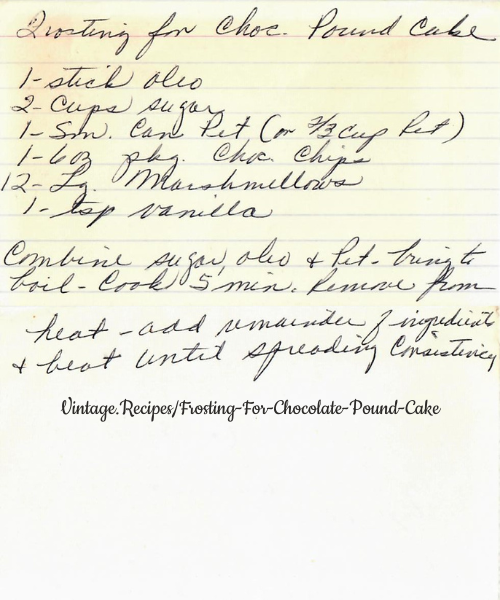 Frosting for Choc. Pound Cake
1 - stick oleo
2 - Cups sugar
1 - Sm. Can Pet (or 2/3 cup Pet)
1 - 6 oz pkg. Choc. Chips
12 - Lg. Marshmellows
1 - tsp vanilla
Combine sugar, oleo & Pet - bring to
boil - Cook 5 min. Remove from
heat - add remainder of ingredients
& beat until spreading Consistency
Vintage.Recipes/Frosting-For-Chocolate-Pound-Cake